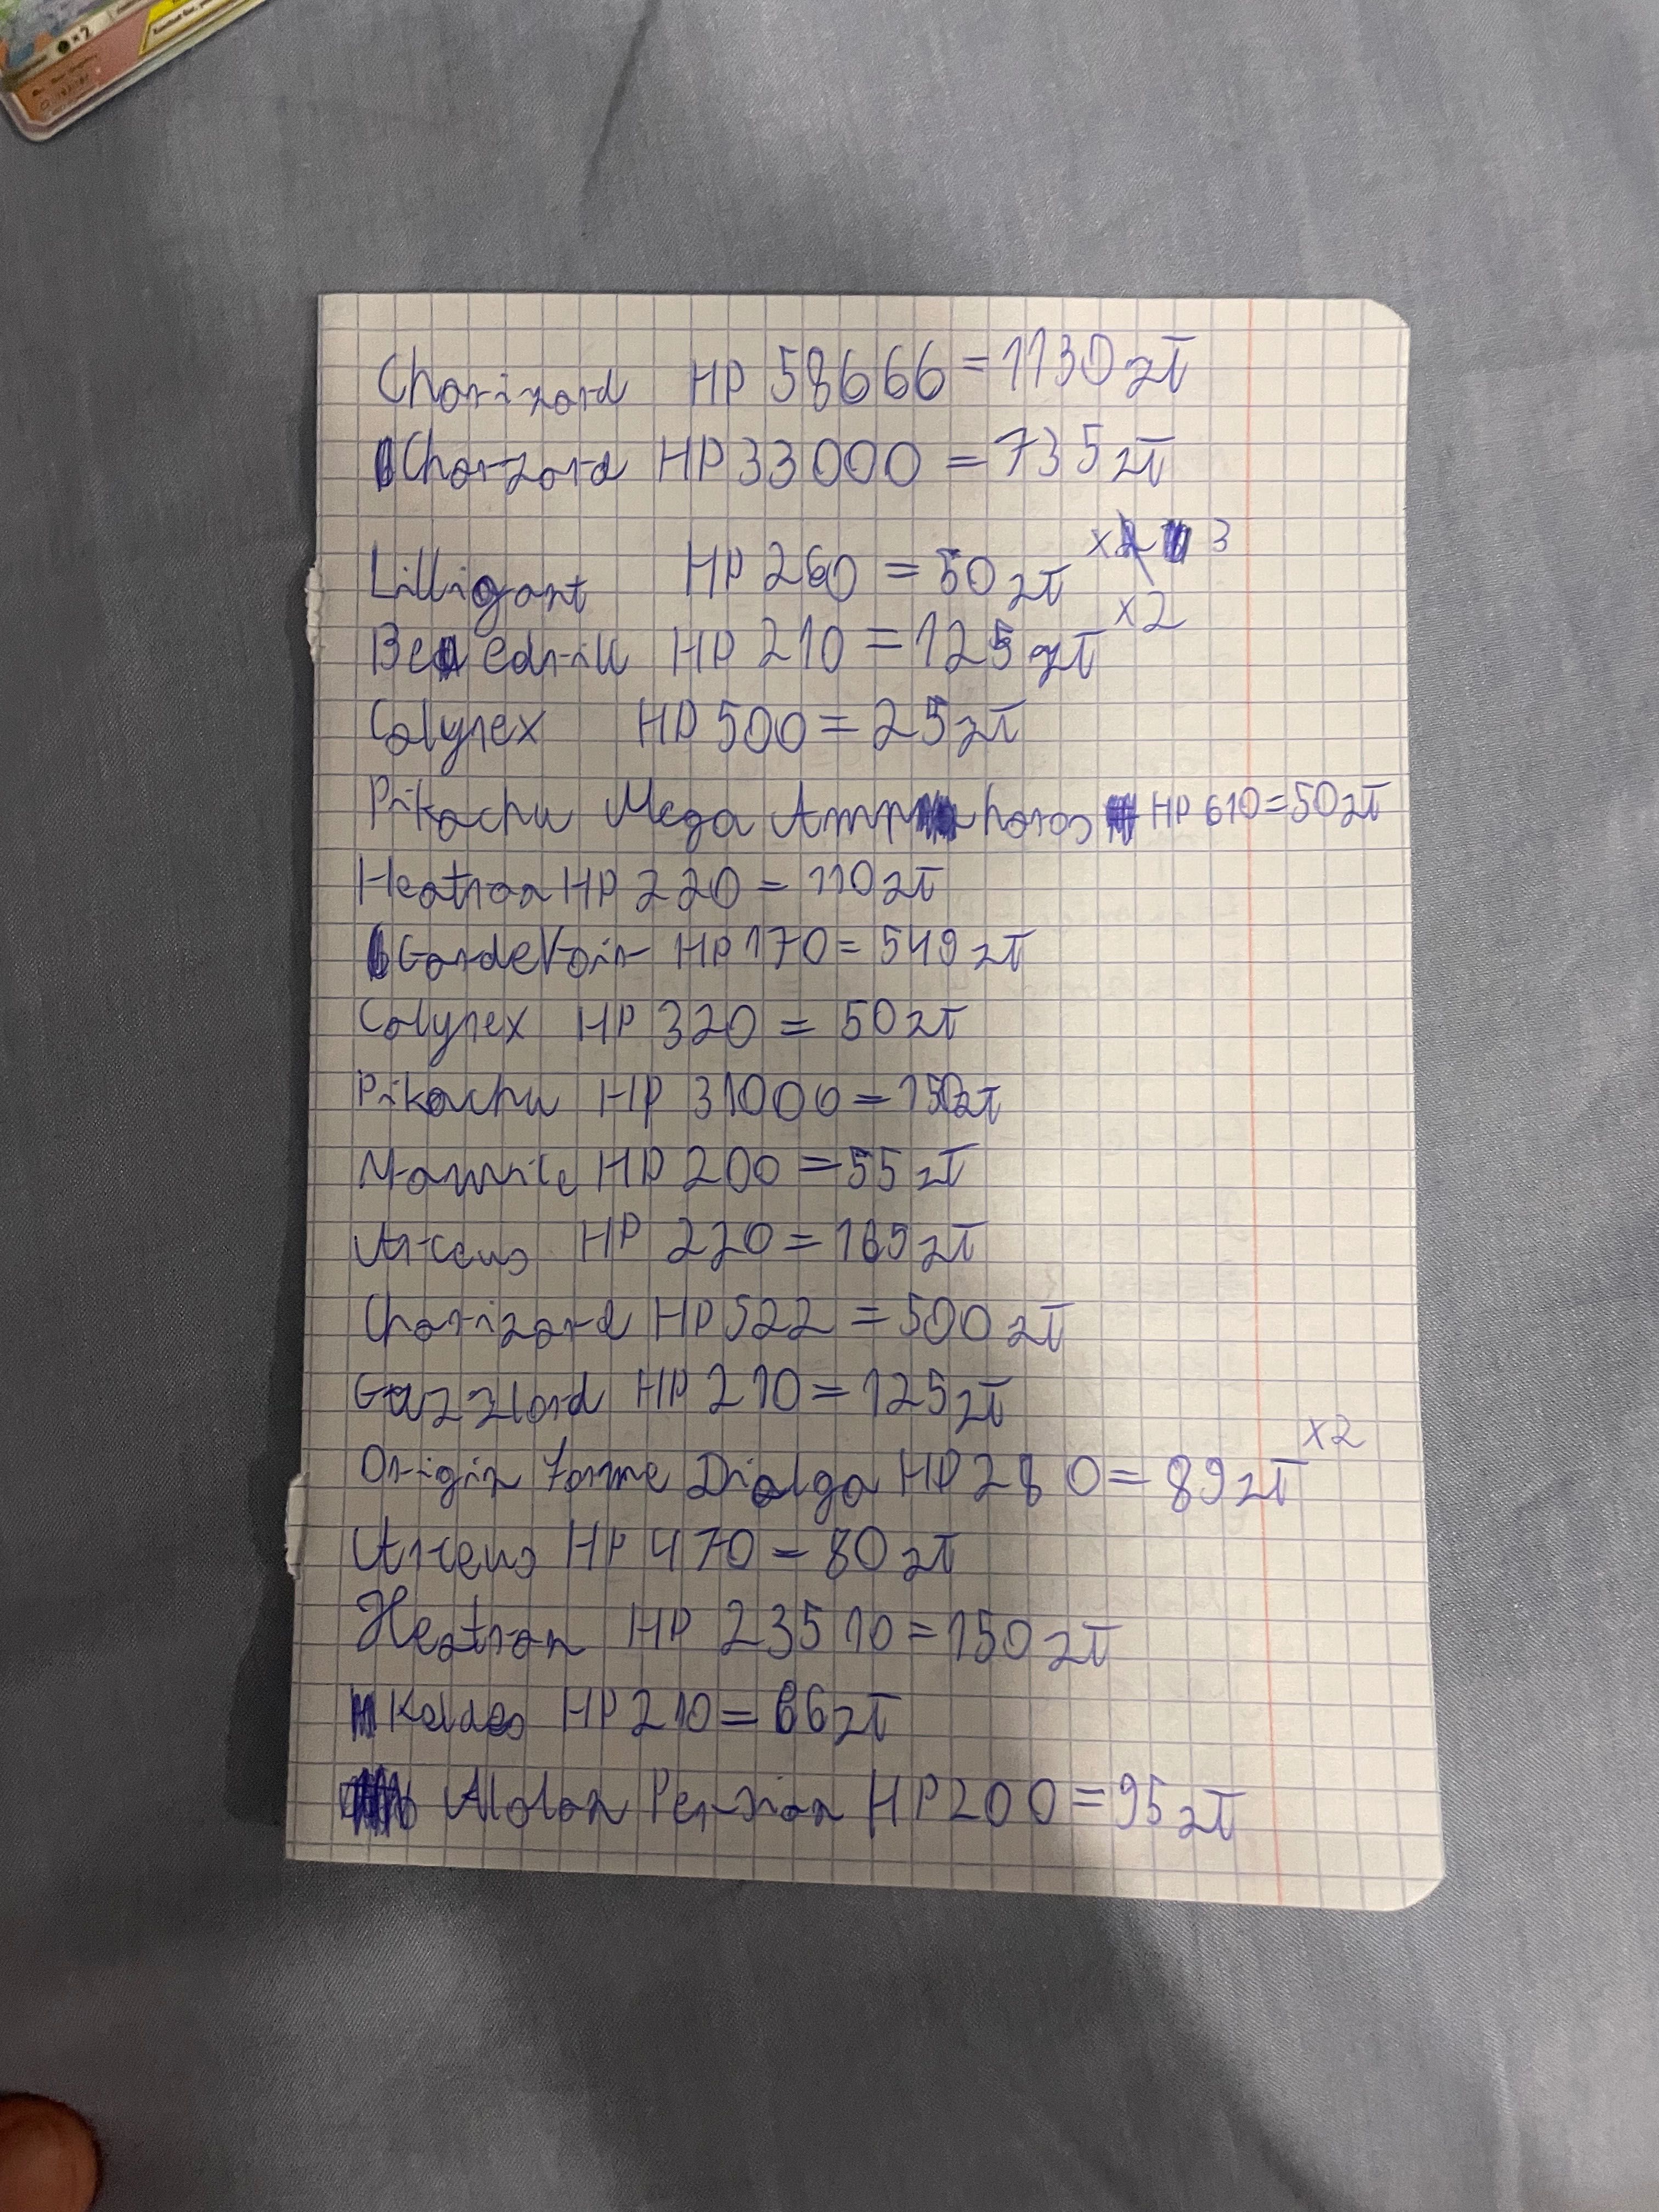 ×2
Charizard HP 58666=1130zł
Charzard HP33000=735zł
Lilligant HP 260=50zł x3
Beedrill HP 210=125zł x2
Calyrex HP 500=25zł
Pikachu Mega Ampharos HP 610=50zł
Heatran HP 220=110zł
GardeVoir HP 170=549zł
Calyrex HP 320=50zł
Pikachu HP 31000=150zł
Mawile HP 200=55zł
Arceus HP 220=165zł
Charizard HP522=500zł
Guzzlord HP 210=125zł
Origin Forme Dialga HP280=89zł x2
Arceus HP 470=80zł
Heatran HP 23510=150zł
Keldeo HP210=66zł
Alolan Persian HP200=95zł